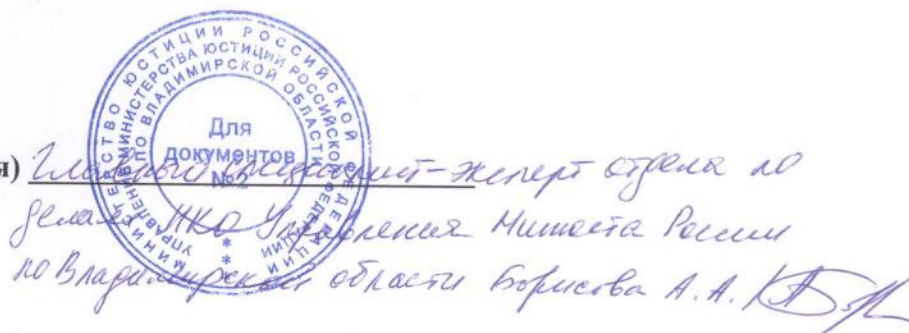 МИНИСТЕРСТВО ЮСТИЦИИ РОССИЙСКОЙ ФЕДЕРАЦИИ
УПРАВЛЕНИЕ МИНИСТЕРСТВА ЮСТИЦИИ РОССИЙСКОЙ ФЕДЕРАЦИИ
ПО ВЛАДИМИРСКОЙ ОБЛАСТИ
Для
документов
№2
Главный специалист-эксперт отдела по
делам НКО Управления Минюста России
по Владимирской области Борисова А. А.